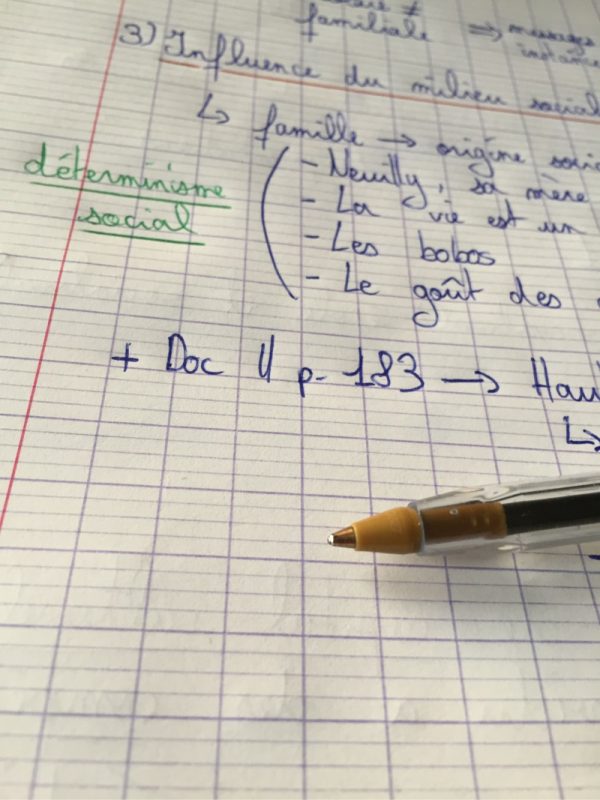 familiale ⇒ messages
3) Influence du milieu social
↳ famille → origine
déterminisme
social
- Neuilly, sa mère
- La vie est un
- Les bobos
- Le goût des
+ Doc 4 p. 183 →
↳